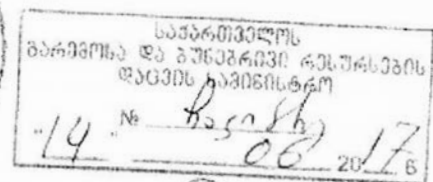 საქართველოს
გარემოსა და ბუნებრივი რესურსების
დაცვის სამინისტრო
№
"14" 06 2017 წ